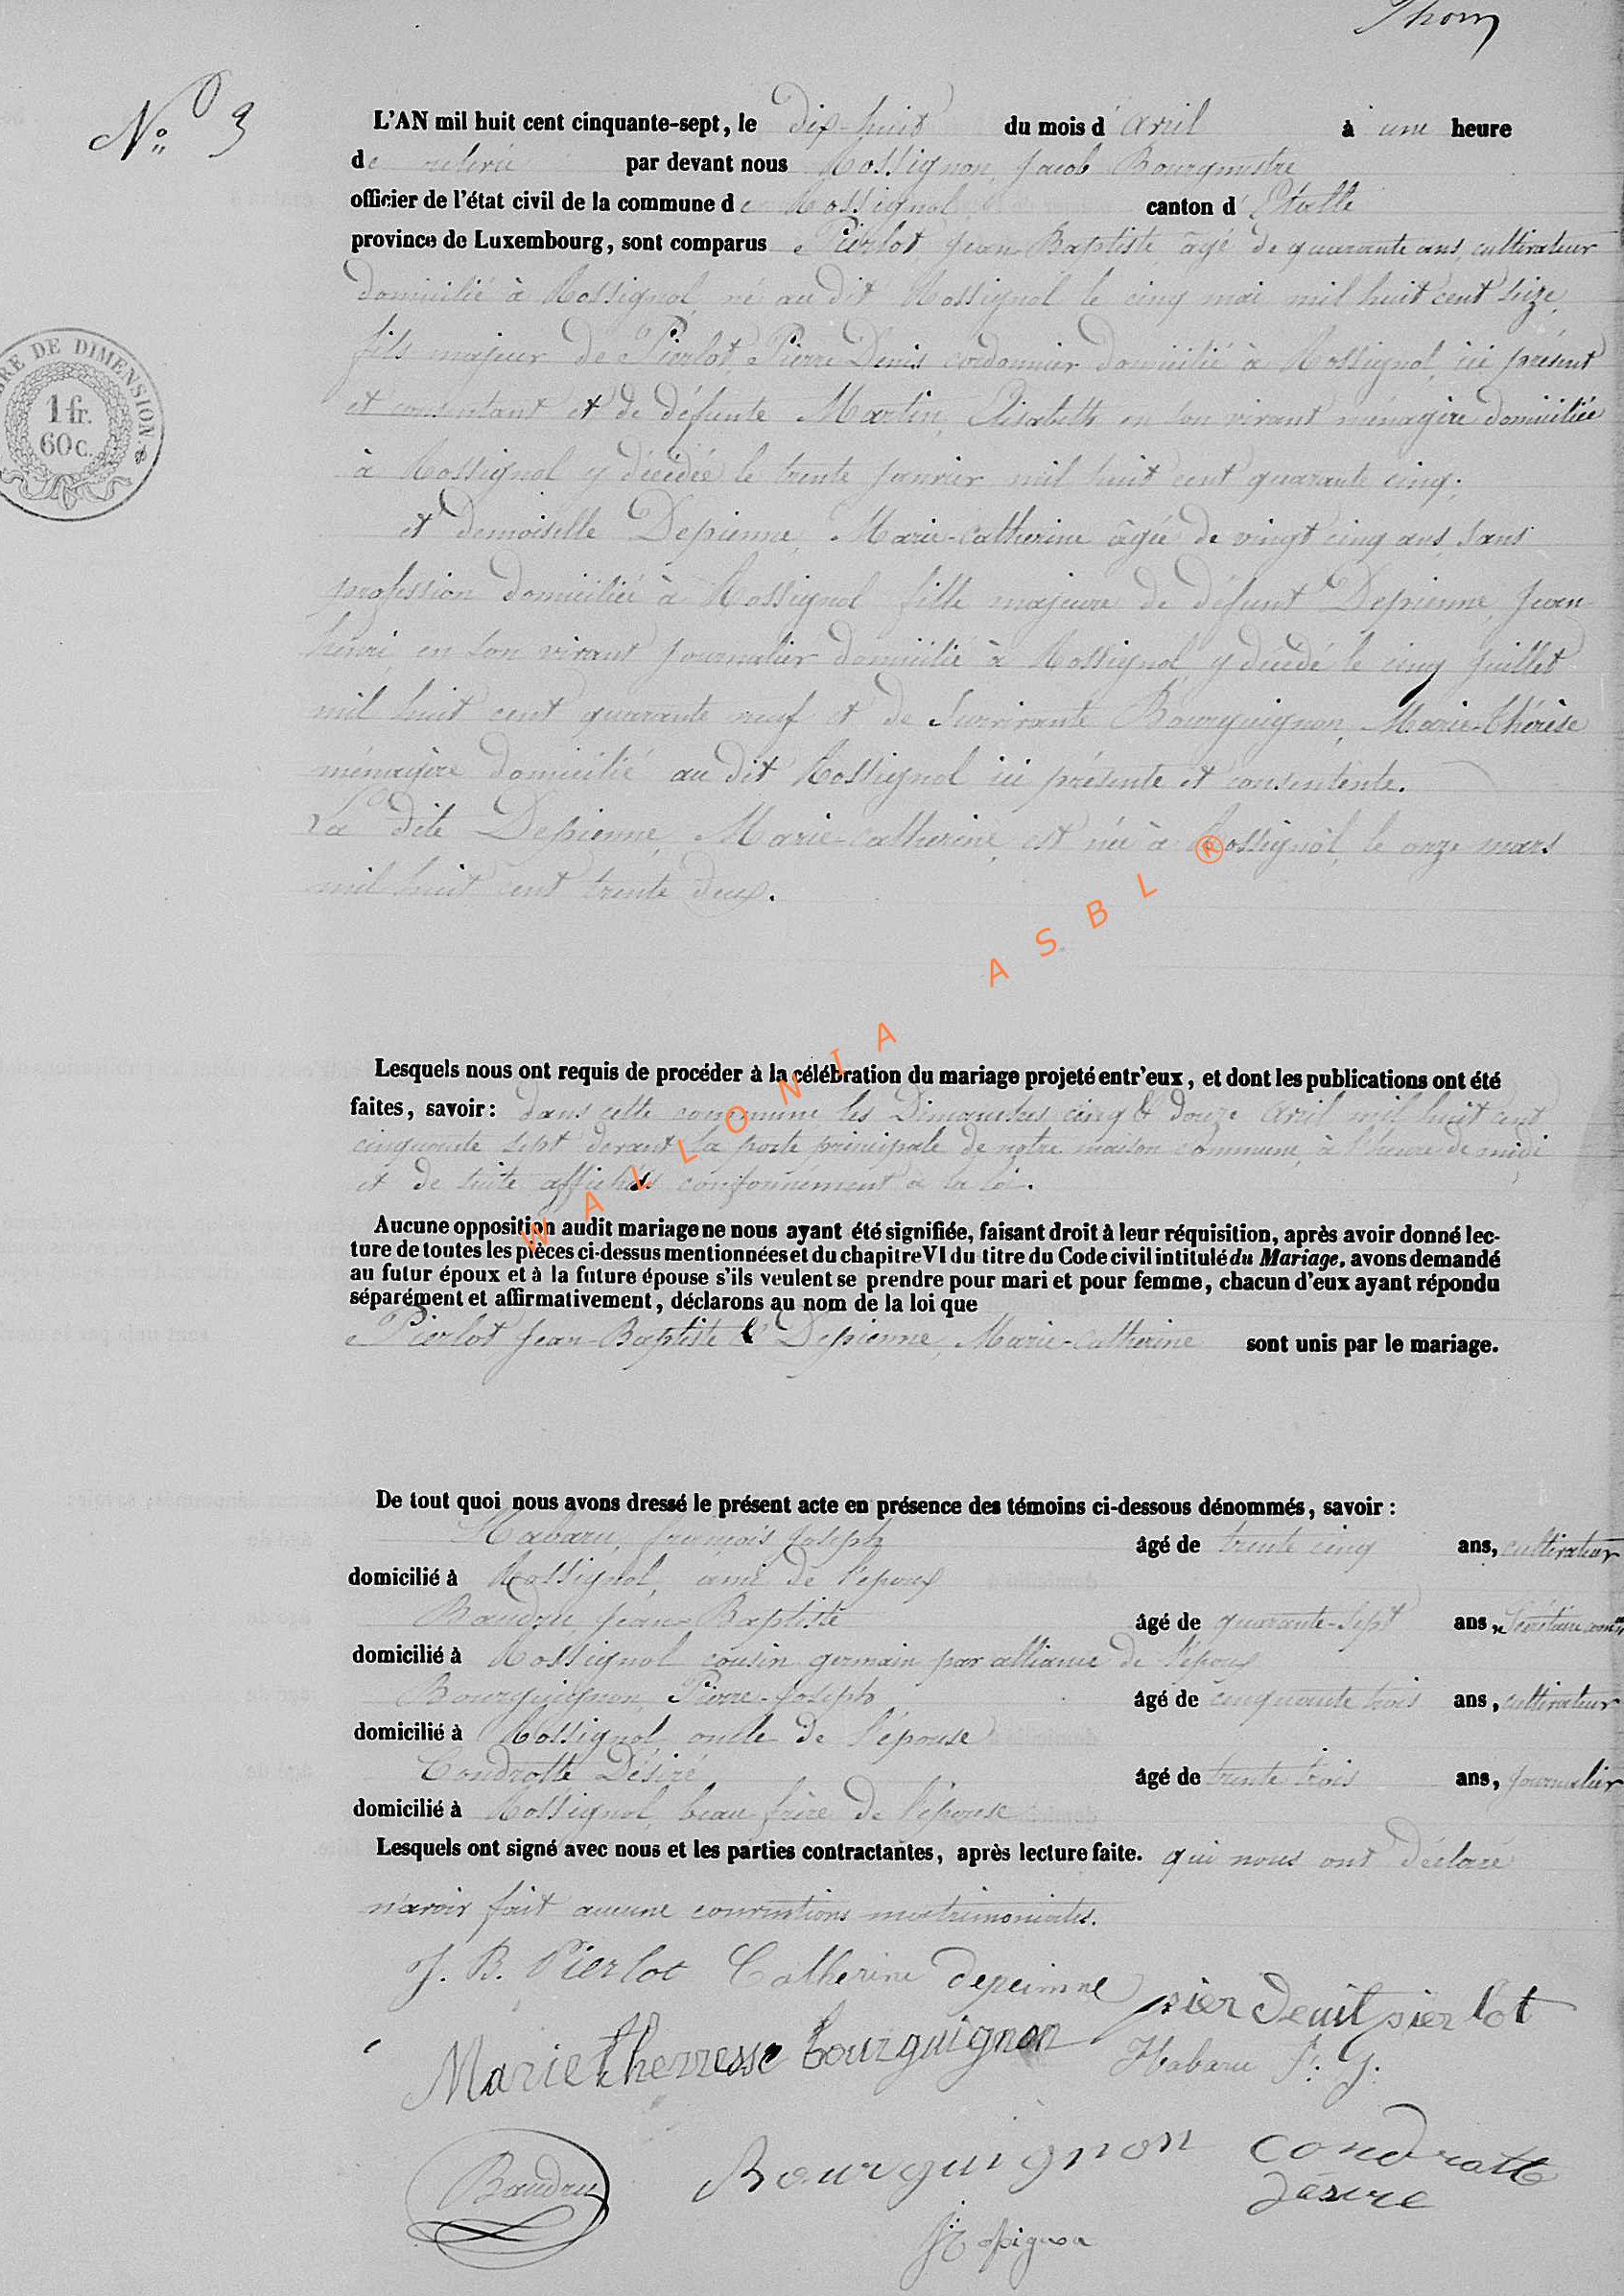 Thom
N° 3
L'AN mil huit cent cinquante-sept, le dix-huit du mois d'avril à une heure
de relevée par devant nous Rossignon, Jacob Bourgmestre
officier de l'état civil de la commune de Rossignol canton d'Etalle
province de Luxembourg, sont comparus Pierlot, Jean-Baptiste âgé de quarante ans, cultivateur
domicilié à Rossignol, né au dit Rossignol le cinq mai mil huit cent seize,
fils majeur de Pierlot, Pierre Denis cordonnier domicilié à Rossignol, ici présent
et consentant et de défunte Martin, Elisabeth en son vivant ménagère domiciliée
à Rossignol y décédée le trente janvier mil huit cent quarante cinq;
et demoiselle Depienne, Marie-catherine âgée de vingt cinq ans, sans
profession domiciliée à Rossignol fille majeure de défunt Depienne, Jean-
henri, en son vivant journalier domicilié à Rossignol, y décédé le cinq juillet
mil huit cent quarante neuf et de survivante Bourguignon, Marie-thérèse
ménagère domicilié au dit Rossignol ici présente et consentente.
La dite Depienne, Marie-catherine, est née à Rossignol, le onze mars
mil huit cent trente deux.
WALLONIA ASBL ®
TIMBRE DE DIMENSION.
1 fr.
60 c.
Lesquels nous ont requis de procéder à la célébration du mariage projeté entr'eux, et dont les publications ont été
faites, savoir: dans cette commune les Dimanches cinq & douze avril mil huit cent
cinquante sept devant la porte principale de notre maison commune, à l'heure de midi
et de suite affichés conformément à la loi.
Aucune opposition audit mariage ne nous ayant été signifiée, faisant droit à leur réquisition, après avoir donné lec-
ture de toutes les pièces ci-dessus mentionnées et du chapitre VI du titre du Code civil intitulé du Mariage, avons demandé
au futur époux et à la future épouse s'ils veulent se prendre pour mari et pour femme, chacun d'eux ayant répondu
séparément et affirmativement, déclarons au nom de la loi que
Pierlot Jean-Baptiste & Depienne, Marie-catherine sont unis par le mariage.
De tout quoi nous avons dressé le présent acte en présence des témoins ci-dessous dénommés, savoir:
Habaru, françois Joseph âgé de trente cinq ans, cultivateur
domicilié à Rossignol, ami de l'époux
Baudru Jean-Baptiste âgé de quarante-sept ans, Secrétaire comm
domicilié à Rossignol cousin germain par alliance de l'époux
Bourguignon Pierre-Joseph âgé de cinquante trois ans, cultivateur
domicilié à Rossignol oncle de l'épouse
Condrotte Désiré âgé de trente trois ans, journalier
domicilié à Rossignol, beau-frère de l'épouse
Lesquels ont signé avec nous et les parties contractantes, après lecture faite. qui nous ont déclaré
n'avoir fait aucune conventions matrimoniales.
J. B. Pierlot Catherine depeinne
pier deuil pierlot
Marie therresse bourguignon
Habaru F. J.
Baudru
Bourguignon
Condrotte
désire